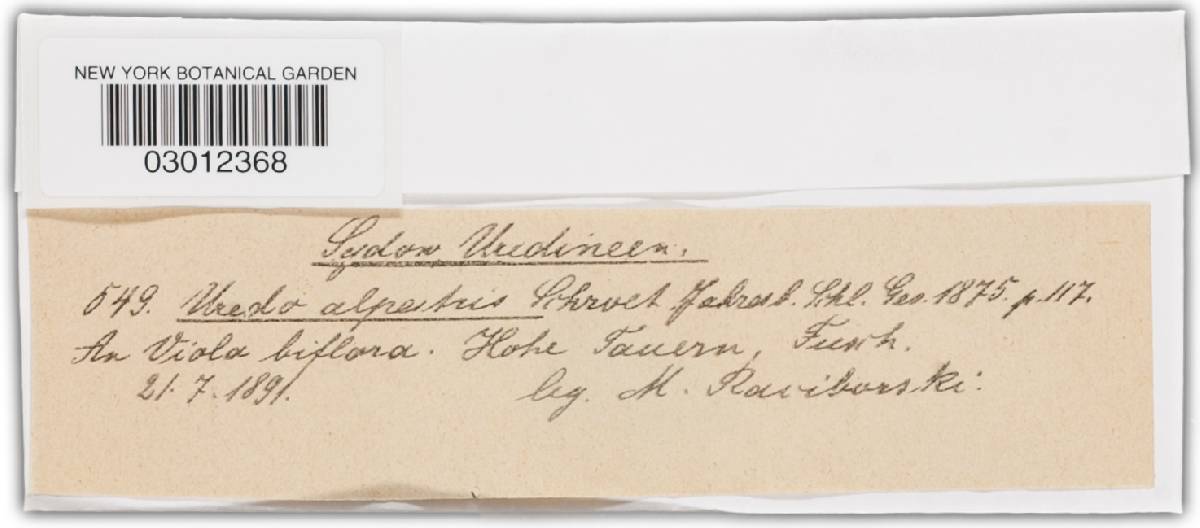 NEW YORK BOTANICAL GARDEN
03012368
Sydow Uredineen.
549. Uredo alpestris Schroet Jahresb. Schl. Ges. 1875. p. 117.
An Viola biflora. Hohe Tauern, Fusch.
21.7.1891. leg. M. Raciborski.